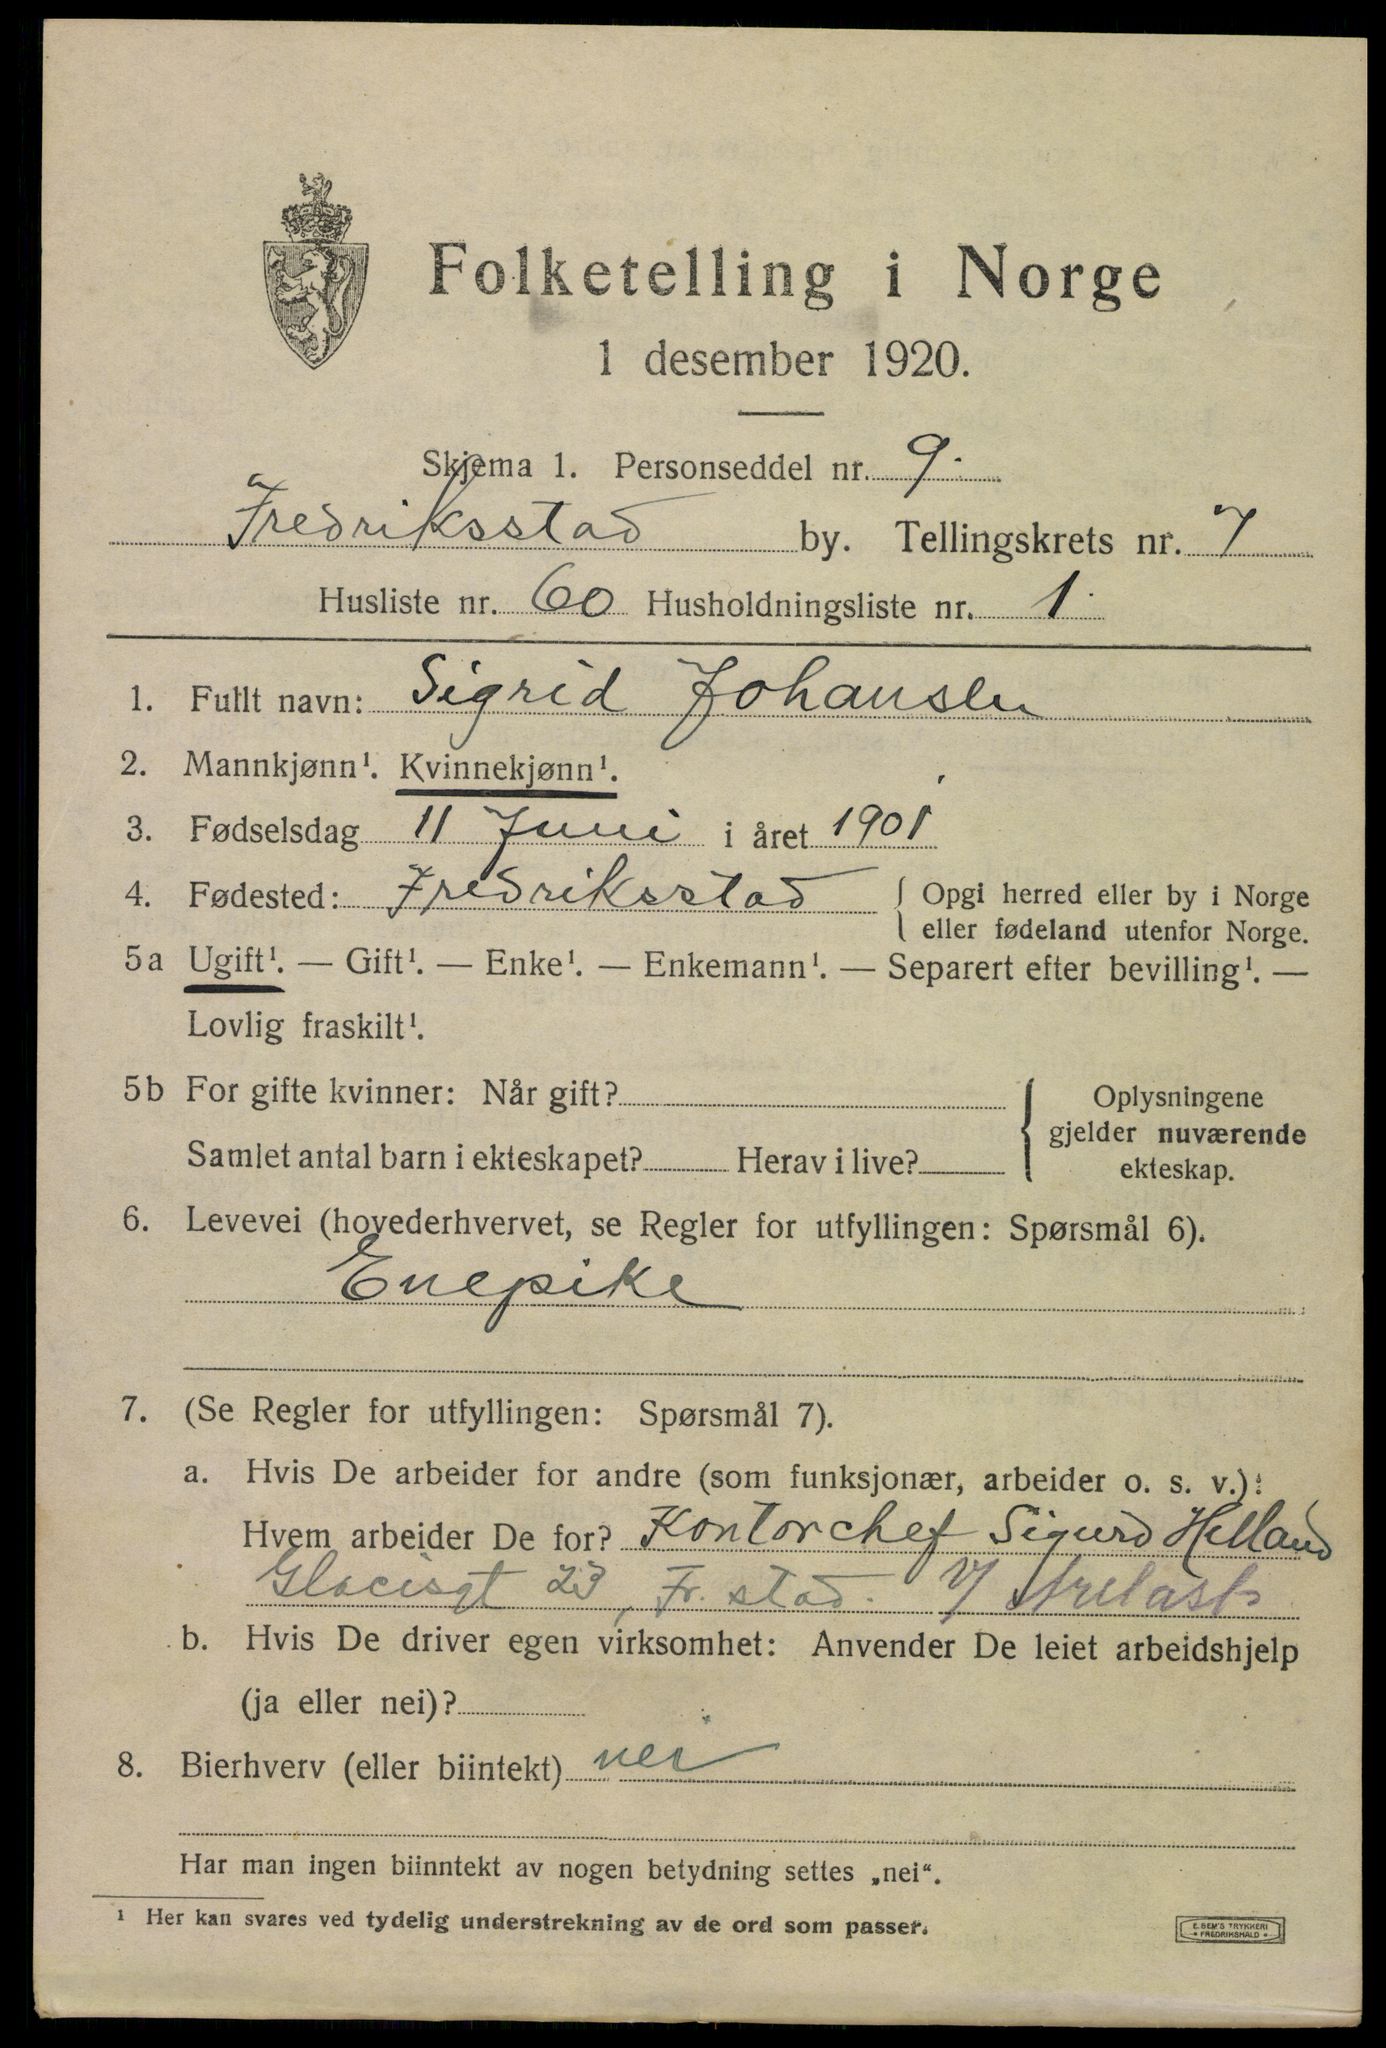 Folketelling i Norge
1 desember 1920.
Skjema 1. Personseddel nr. 9.
Fredriksstad by. Tellingskrets nr. 7
Husliste nr. 60 Husholdningsliste nr. 1.
1. Fullt navn: Sigrid Johansen
2. Mannkjønn¹. Kvinnekjønn¹.
3. Fødselsdag 11 Juni i året 1901
4. Fødested: Fredriksstad { Opgi herred eller by i Norge
eller fødeland utenfor Norge.
5a Ugift¹. — Gift¹. — Enke¹. — Enkemann¹. — Separert efter bevilling¹. —
Lovlig fraskilt¹.
5b For gifte kvinner: Når gift? Oplysningene
gjelder nuværende
Samlet antal barn i ekteskapet? Herav i live? ekteskap.
6. Levevei (hovederhvervet, se Regler for utfyllingen: Spørsmål 6).
Enepike
7. (Se Regler for utfyllingen: Spørsmål 7).
a. Hvis De arbeider for andre (som funksjonær, arbeider o. s. v.):
Hvem arbeider De for? Kontorchef Sigurd Helland
Glacisgt 23, Fr. stad.
b. Hvis De driver egen virksomhet: Anvender De leiet arbeidshjelp
(ja eller nei)?
8. Bierhverv (eller biintekt) nei
Har man ingen biinntekt av nogen betydning settes „nei“.
¹ Her kan svares ved tydelig understrekning av de ord som passer.
E. SEM'S TRYKKERI
FREDRIKSHALD